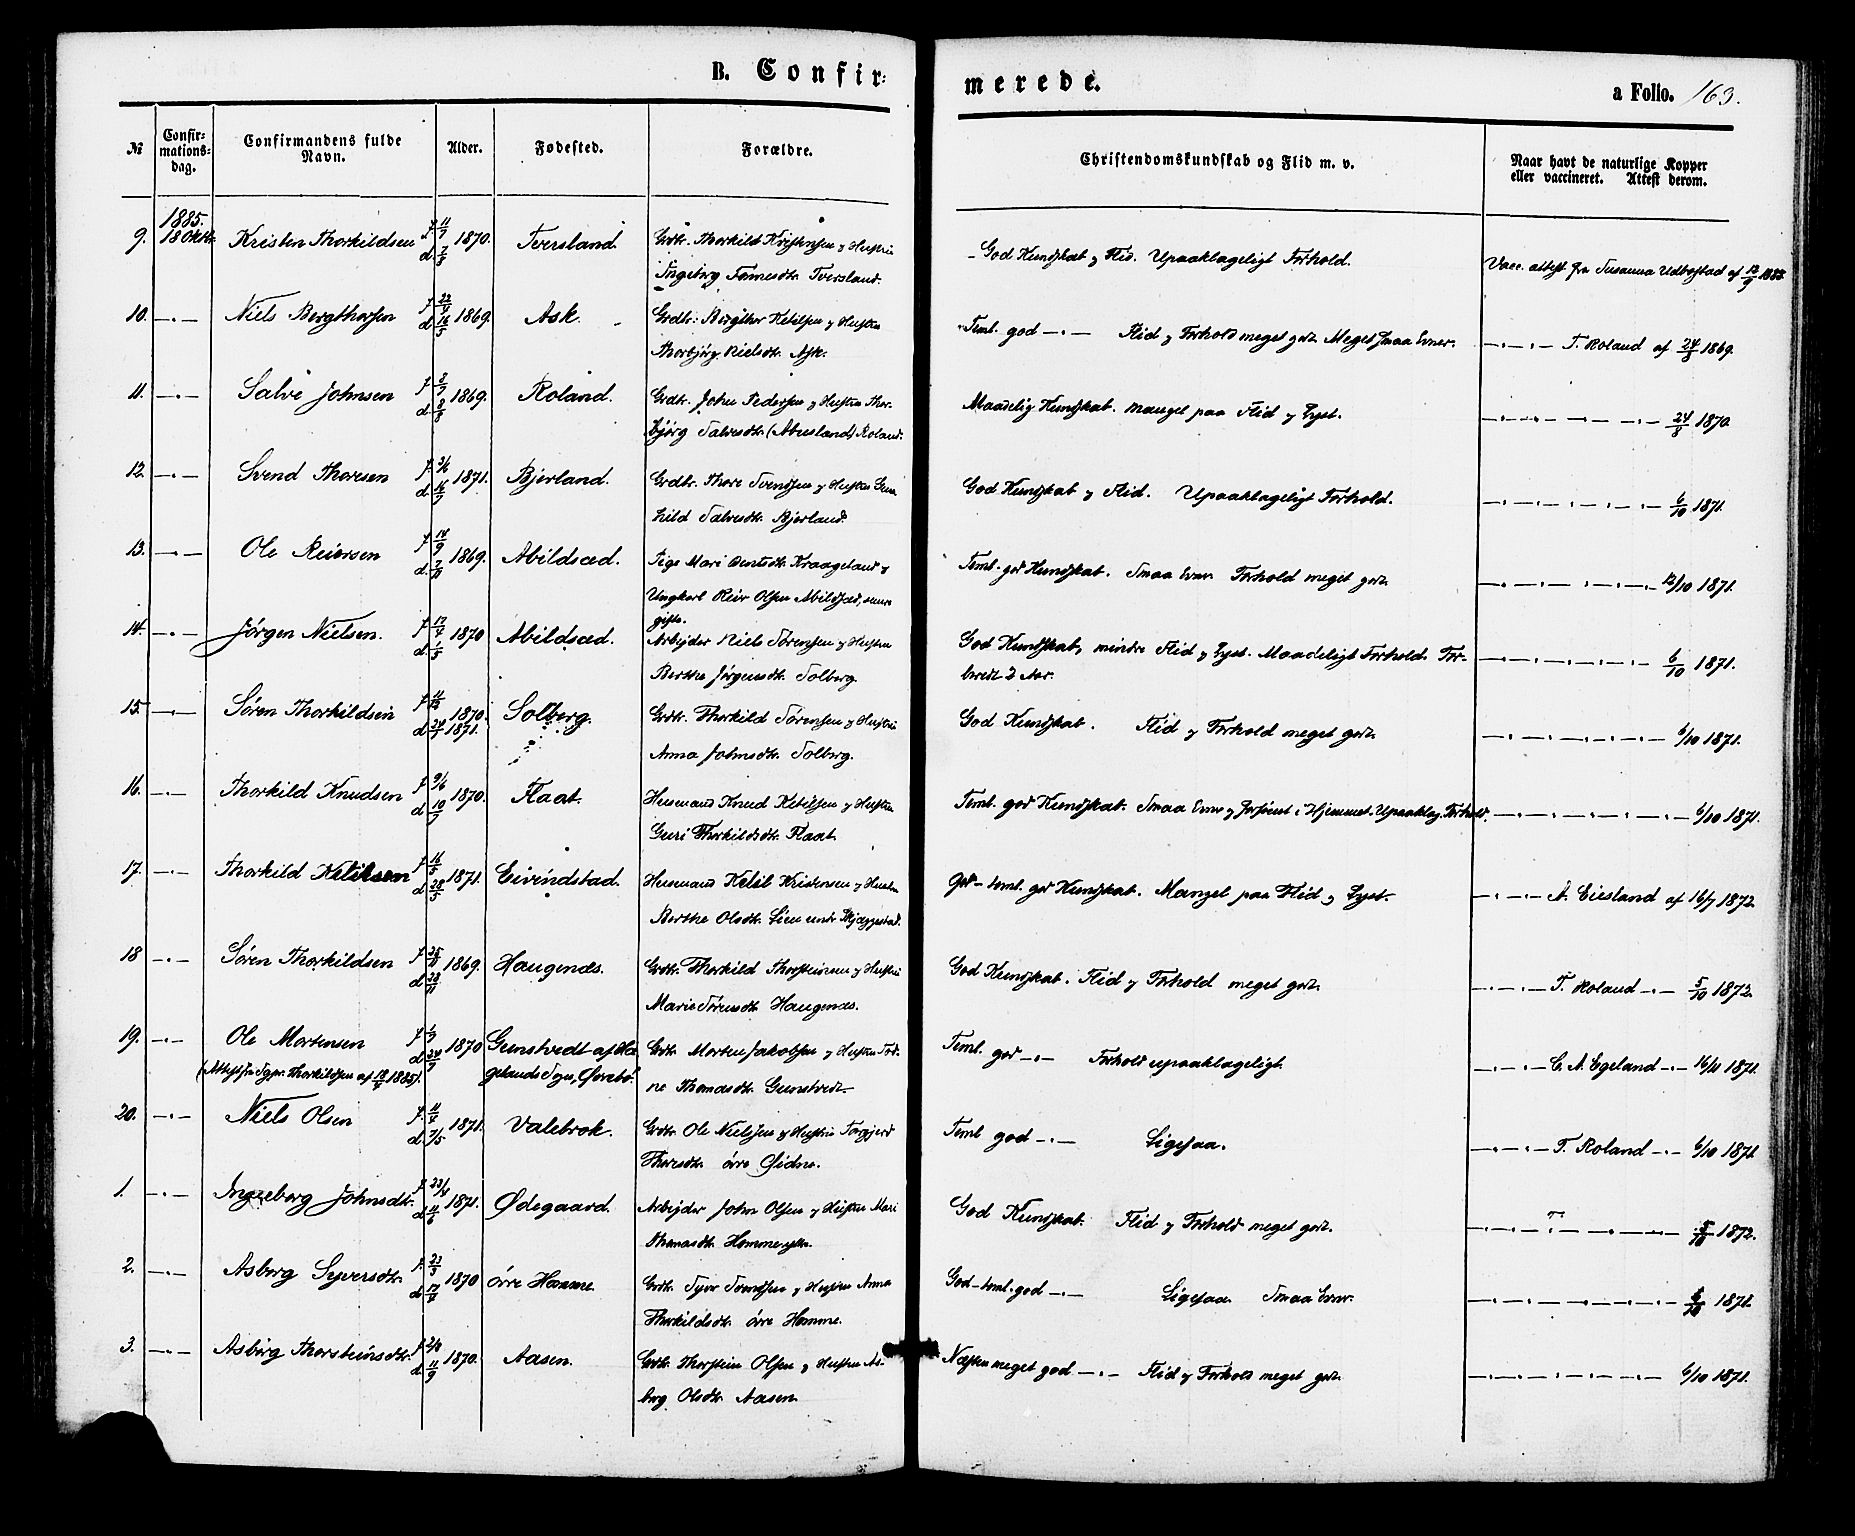 B. Confir-
merede.
a Folio. 163.
№
Confir-
mations-
dag.
Confirmandens fulde
Navn.
Alder.
Fødested.
Forældre.
Christendomskundskab og Flid m. v.
Naar havt de naturlige Kopper
eller vaccineret. Attest derom.
1885.
9. 18 Oktbr. Kristen Thorkildsen f 11/7 d 7/8 1870. Tversland. Grdbr. Thorkild Kristensen og Hustru
Ingeborg Tversland.
God Kundskab og Flid. Upaaklageligt Forhold.
Vacc. attest fra Susanna Udbøstad af 12/9 1885
10. —"— Niels Bergthorsen 1869. Ask. Grdbr: Bergthor Ketilsen og Hustru
Thorbjørg Nielsdtr. Ask.
Teml. god —"— Flid og Forhold meget godt. Meget smaa Evner.
—"— T. Roland af 24/8 1869.
11. —"— Salve Johnsen f 8/7 d. 8/8 1869. Roland. Grdbr. John Pedersen og Hustru Thor-
bjørg Salvesdtr. (Abusland) Roland.
Maadelig Kundskab. Mangel paa Flid og Lyst.
—"— 24/8 1870
12. —"— Svend Thoresen 1871. Bjerland. Grdbr. Thore Svendsen og Hustru Gun-
hild Salvesdtr. Bjerland.
God Kundskab og Flid. Upaaklageligt Forhold.
—"— 6/10 1871.
13. —"— Ole Reiersen f 14/9 1869. Abildsæd. Pige Mari Berntsdtr. Kraageland og
Ungkarl Reier Olsen Abildsæd, senere
gifte.
Teml. god Kundskab. Smaa Evner Forhold meget godt
—"— 12/10 1871.
14. —"— Jörgen Nielsen. f 17/4 d. 1/5 1870 Abildsæd. Arbejder Niels Sørensen og Hustru
Berthe Jørgensdtr. Solberg.
God Kundskab, mindre Flid og Lyst. Maadeligt Forhold. For-
beredt 2 Aar.
—"— 6/10 1871.
15. —"— Søren Thorkildsen f 11/12 1870. d 24/1 1871. Solberg. Grdbr. Thorkild Sørensen og Hustru
Anna Johnsdtr. Solberg.
God Kundskab. Flid og Forhold meget godt.
—"— 6/10 1871.
16. —"— Thorkild Knudsen f 9/6 d 10/7 1870. Flaat. Husmand Knud Ketilsen og Hustru
Guri Thorkildsdtr. Flaat.
Teml. god Kundskab. Smaa Evner og forsømt i Hjemmet. Upaaklag. Forhold.
—"— 6/10 1871.
17. —"— Thorkild Ketilsen f 16/5 d 28/5 1871. Eivindstad. Husmand Ketil Kristensen og Hustru
Berthe Olsdtr. Lien under Skjæggestad.
God - teml. god Kundskab. Mangel paa Flid og Lyst.
—"— A. Eiesland af 16/7 1872.
18 —"— Søren Thorkildsen f 25/11 d 28/11 1869. Haugenæs. Grdbr. Thorkild Thorsteinsen og Hustru
Marie Sørensdtr. Haugenæs.
God Kundskab. Flid og Forhold meget godt.
—"— T. Roland —"— 5/10 1872.
19. —"— Ole Mortensen 1870 Gunstvedt af Hæ-
gelands Sogn, Øvrebø. Grdbr. Morten Jakobsen og Hustru Tod-
ne Thomasdtr. Gunstvedt.
(Attest fra Sgpr. Thorkildsen af 18/9 1885).
Teml. god —"— Forhold upaaklageligt.
—"— C. A. Egeland —"— 16/11 1871.
20. —"— Niels Olsen f. 11/4 d. 7/5 1871. Valebrok. Grdbr. Ole Nielsen og Hustru Torgjerd
Thoresdtr. øvre Øidne.
Teml. god —"— Ligesaa.
—"— T. Roland —"— 6/10 1871.
1. —"— Ingeborg Johnsdtr. f 23/4 d 11/6 1871. Ødegaard. Arbejder John Olsen og Hustru Mari
Thomasdtr. Homme
God Kundskab. Flid og Forhold meget godt.
—"— T. —"— 5/10 1872.
2. —"— Asborg Syversdtr. 1870 øvre Homme. Grdbr. Syver Svendsen og Hustru Anna
Thorkildsdtr. øvre Homme.
God - teml. god —"— Ligesaa Smaa Evner.
—"— 6/10 1871.
3. —"— Asborg Thorsteinsdtr. d 11/9 1870. Aasen. Grdbr. Thorstein Olsen og Hustru As-
borg Olsdtr. Aasen.
Næsten meget god —"— Flid og Forhold meget godt.
—"— 6/10 1871.